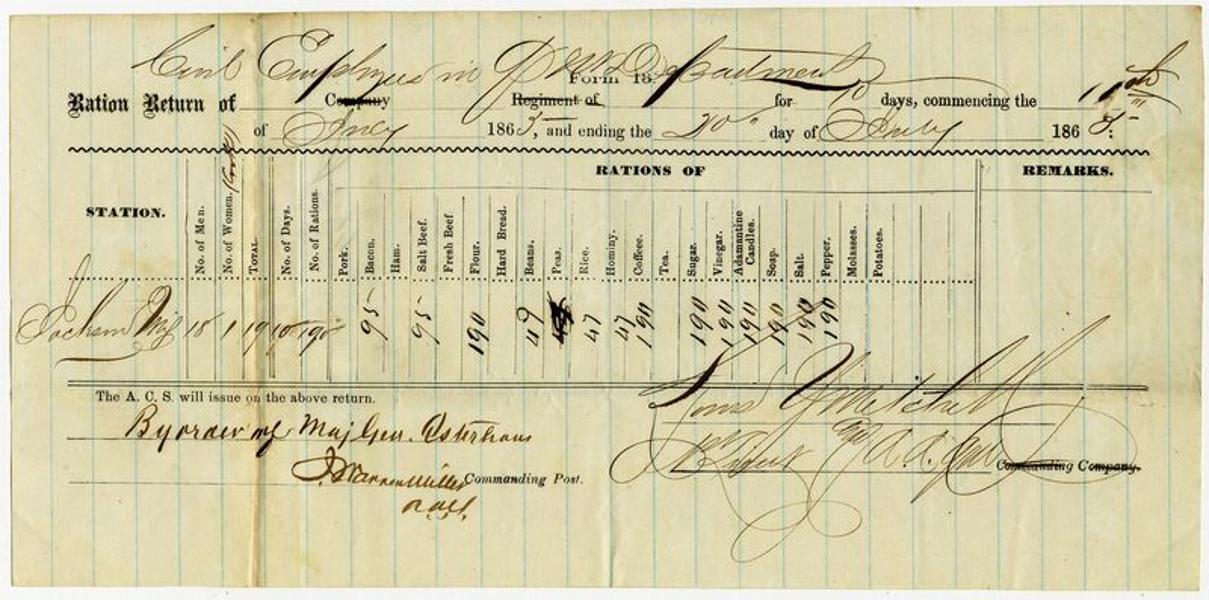 Civil Employees in Q M Department
Form 18.
Ration Return of Company Regiment of for 10 days, commencing the 11th
of July 1865, and ending the 20" day of July 1865:
RATIONS OF
REMARKS.
STATION. No. of Men. No. of Women. (Cooks) TOTAL. No. of Days. No. of Rations. Pork. Bacon. Ham. Salt Beef. Fresh Beef Flour. Hard Bread. Beans. Peas. Rice. Hominy. Coffeee. Tea. Sugar. Vinegar. Adamantine Candles. Soap. Salt. Pepper. Molasses. Potatoes.
Jackson Miss 18 1 19 10 190 95 95 190 49 47 47 190 190 190 190 190 190 190
The A. C. S. will issue on the above return.
By order of Maj Gen. Osterhaus
J. Warren Miller Commanding Post.
A. A. G.
Mitchell
Capt A. A. Q M Commanding Company.